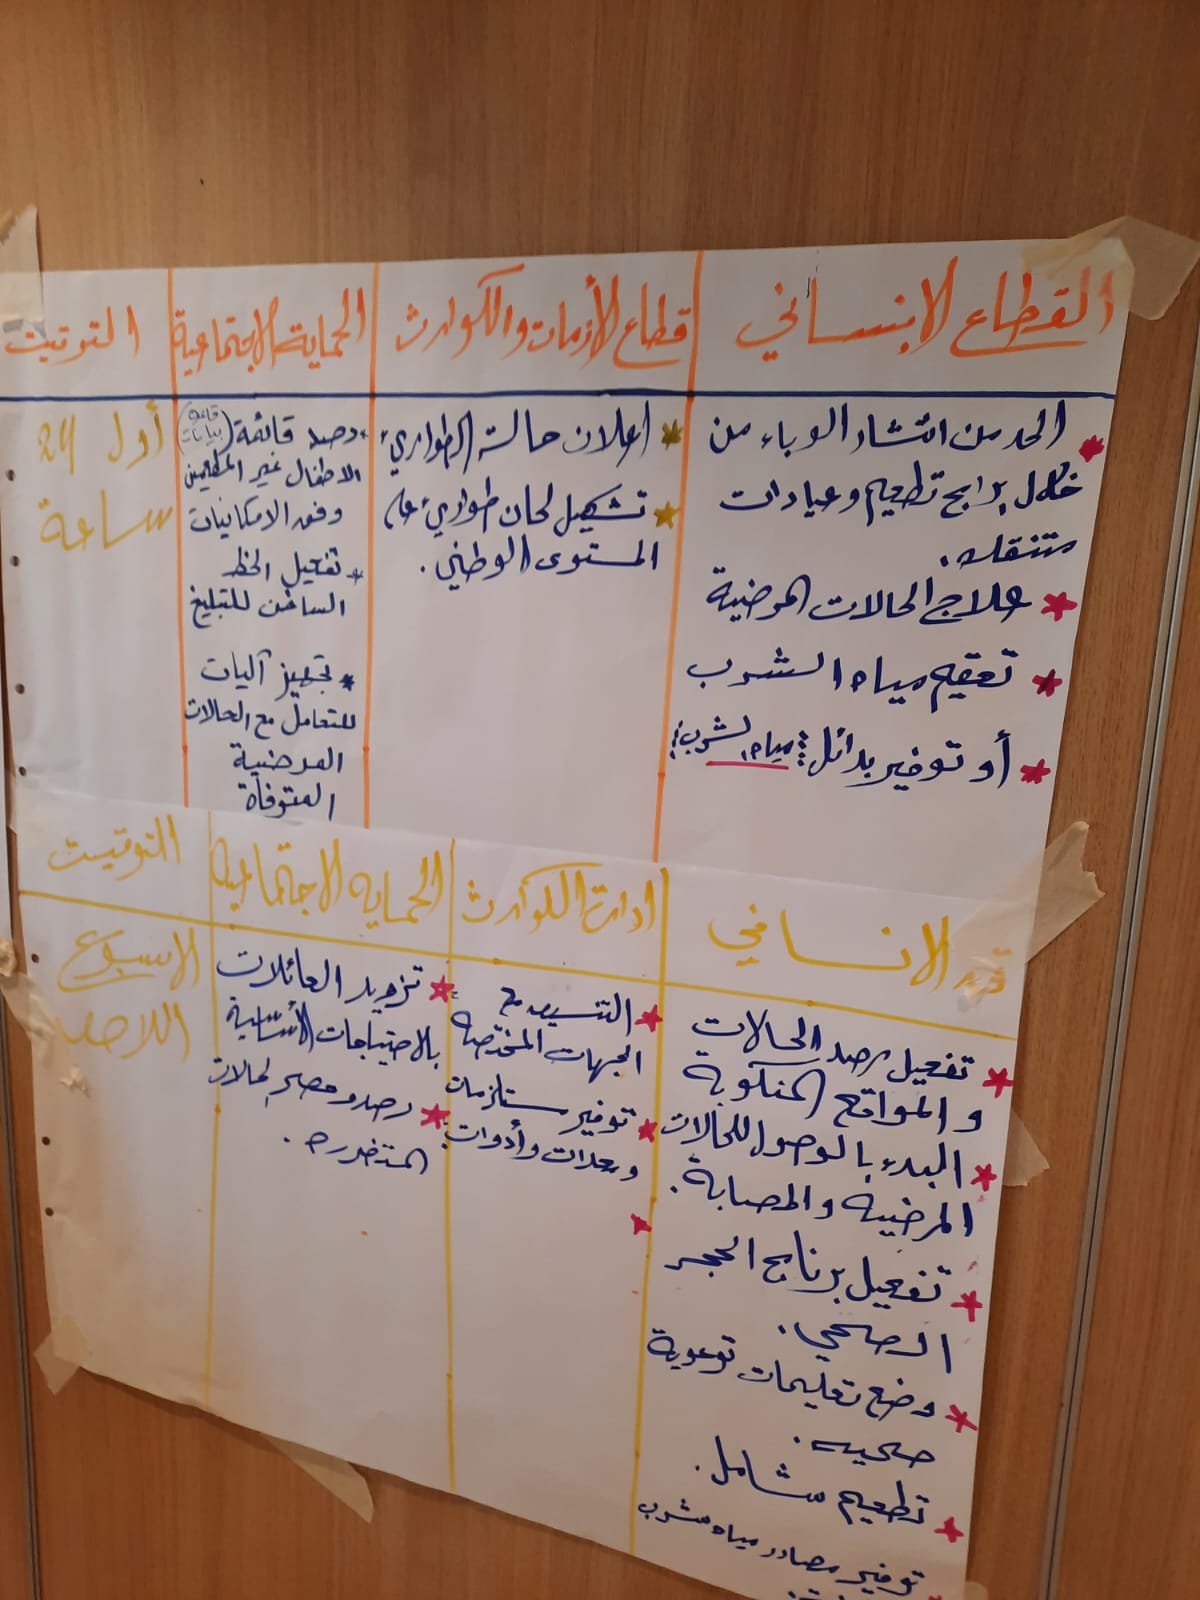 القطاع الإنساني
قطاع الأزمات والكوارث
الحماية الاجتماعية
التوقيت
الحد من انتشار الوباء من
خلال برامج تطعيم وعيادات
متنقله.
علاج الحالات المرضية
تعقيم مياه الشرب
أو توفير بدائل مياه الشرب
اعلان حالة الطوارئ
تشكيل لجان طوارئ على
المستوى الوطني.
رصد قائمة (قاعدة بيانات)
الاطفال غير المطعمين
وفق الامكانيات
تفعيل الخط
الساخن للتبليغ
تجهيز آليات
للتعامل مع الحالات
المرضية
المتوفاة
أول 24
ساعة
الانساني
ادارة الكوارث
الحماية الاجتماعية
التوقيت
تفعيل رصد الحالات
والمواقع المنكوبة
البدء بالوصول للحالات
المرضيه والمصابة.
تفعيل برنامج الحجر
الصحي.
وضع تعليمات توعوية
صحيه.
تطعيم شامل.
توفير مصادر مياه شرب
التنسيق مع
الجهات المختصه
توفير مستلزمات
ومعدات وأدوات
تزويد العائلات
بالاحتياجات الأساسية
رصد وحصر لحالات
المتضرره.
الاسبوع
اللاحق